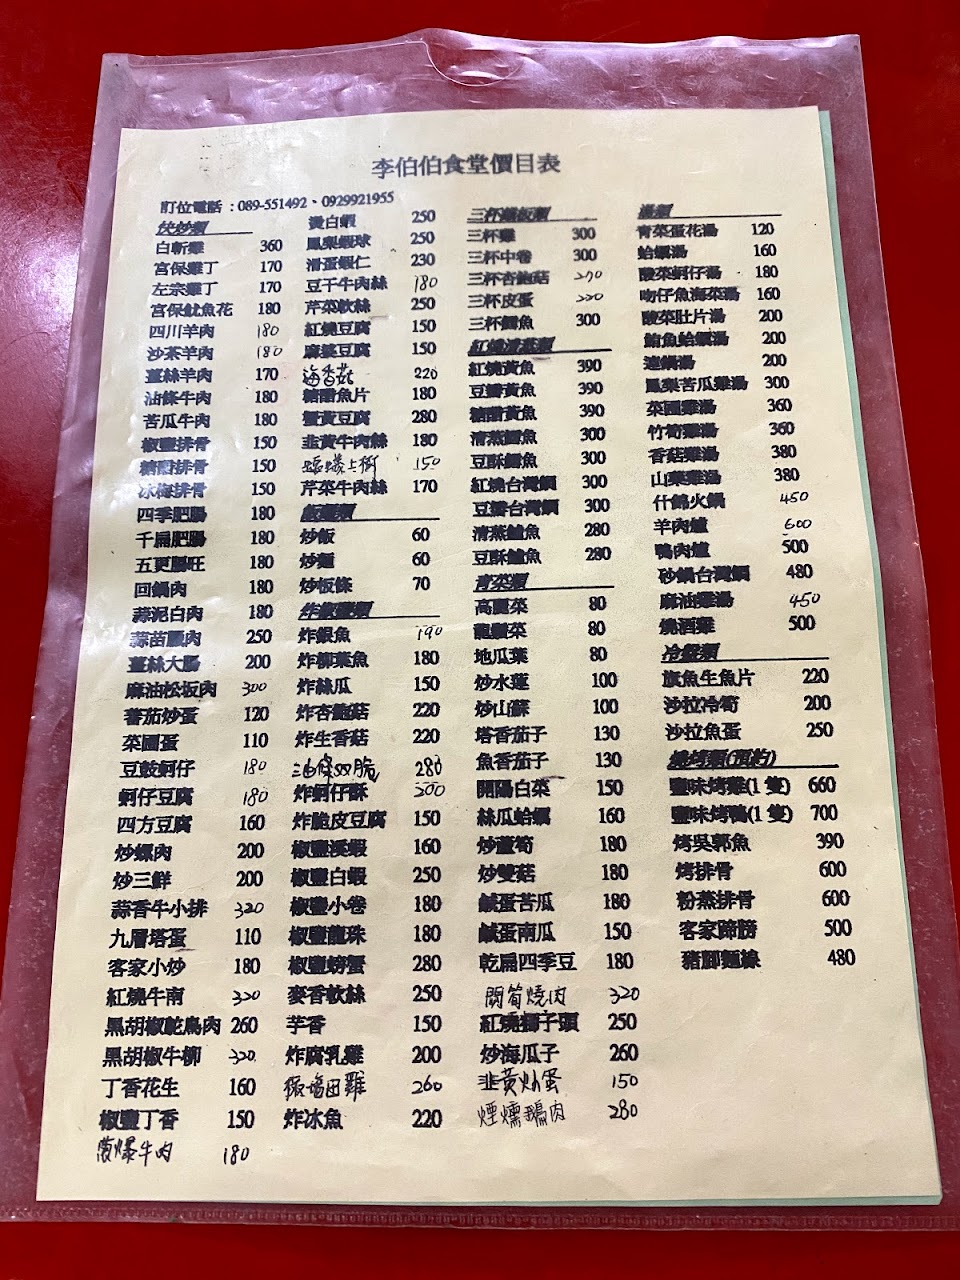 李伯伯食堂價目表
訂位電話：089-551492、0929921955
快炒類
白斬雞 360
宮保雞丁 170
左宗雞丁 170
宮保魷魚花 180
四川羊肉 180
沙茶羊肉 180
薑絲羊肉 170
油條牛肉 180
苦瓜牛肉 180
椒鹽排骨 150
糖醋排骨 150
冰梅排骨 150
四季肥腸 180
干扁肥腸 180
五更腸旺 180
回鍋肉 180
蒜泥白肉 180
蒜苗臘肉 250
薑絲大腸 200
麻油松板肉 300
蕃茄炒蛋 120
菜圃蛋 110
豆豉蚵仔 180
蚵仔豆腐 180
四方豆腐 160
炒螺肉 200
炒三鮮 200
蒜香牛小排 320
九層塔蛋 110
客家小炒 180
紅燒牛南 320
黑胡椒鴕鳥肉 260
黑胡椒牛柳 320
丁香花生 160
椒鹽丁香 150
蔥爆牛肉 180
燙白蝦 250
鳳梨蝦球 250
滑蛋蝦仁 230
豆干牛肉絲 180
芹菜軟絲 250
紅燒豆腐 150
麻婆豆腐 150
海香菇 220
糖醋魚片 180
蟹黃豆腐 280
韭黃牛肉絲 180
螞蟻上樹 150
芹菜牛肉絲 170
飯麵類
炒飯 60
炒麵 60
炒板條 70
炸椒鹽類
炸銀魚 190
炸柳葉魚 180
炸絲瓜 150
炸杏鮑菇 220
炸生香菇 220
油條双脆 280
炸蚵仔酥 300
炸脆皮豆腐 150
椒鹽溪蝦 160
椒鹽白蝦 250
椒鹽小卷 180
椒鹽龍珠 180
椒鹽螃蟹 280
麥香軟絲 250
芋香 150
炸腐乳雞 200
椒塩田雞 260
炸冰魚 220
三杯鐵板類
三杯雞 300
三杯中卷 300
三杯杏鮑菇
三杯皮蛋
三杯鱈魚 300
紅燒清蒸類
紅燒黃魚 390
豆瓣黃魚 390
糖醋黃魚 390
清蒸鱈魚 300
豆酥鱈魚 300
紅燒台灣鯛 300
豆瓣台灣鯛 300
清蒸鱸魚 280
豆酥鱸魚 280
青菜類
高麗菜 80
龍鬚菜 80
地瓜葉 80
炒水蓮 100
炒山蘇 100
塔香茄子 130
魚香茄子 130
開陽白菜 150
絲瓜蛤蠣 160
炒蘆筍 180
炒雙菇 180
鹹蛋苦瓜 180
鹹蛋南瓜 150
乾扁四季豆 180
閞筍燒肉 320
紅燒獅子頭 250
炒海瓜子 260
韭黃炒蛋 150
煙燻鵝肉 280
湯類
青菜蛋花湯 120
蛤蠣湯 160
酸菜蚵仔湯 180
吻仔魚海菜湯 160
酸菜肚片湯 200
鮪魚蛤蠣湯 200
連鍋湯 200
鳳梨苦瓜雞湯 300
菜圃雞湯 360
竹筍雞湯 360
香菇雞湯 380
山藥雞湯 380
什錦火鍋 450
羊肉爐 600
鴨肉爐 500
砂鍋台灣鯛 480
麻油雞湯 450
燒酒雞 500
冷盤類
旗魚生魚片 220
沙拉冷筍 200
沙拉魚蛋 250
燒烤類(預約)
鹽味烤雞(1 隻) 660
鹽味烤鴨(1 隻) 700
烤吳郭魚 390
烤排骨 600
粉蒸排骨 600
客家蹄膀 500
豬腳麵線 480